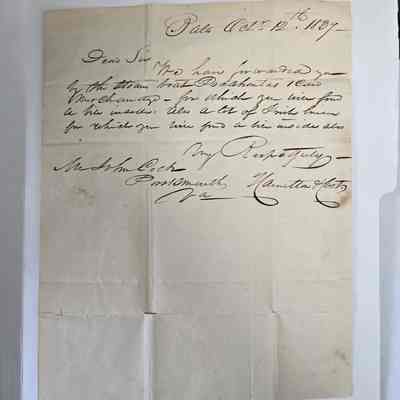 Balto Octr 12th 1839 -
Dear Sir
We have forwarded you
by the steam boat Pocahontas 1 Case
Merchandize - for which you will find
a bill inside: Also a lot of
for which you will find a bill inside also
Very Respectfully -
Mr John Cock
Portsmouth Hamilton &
Va